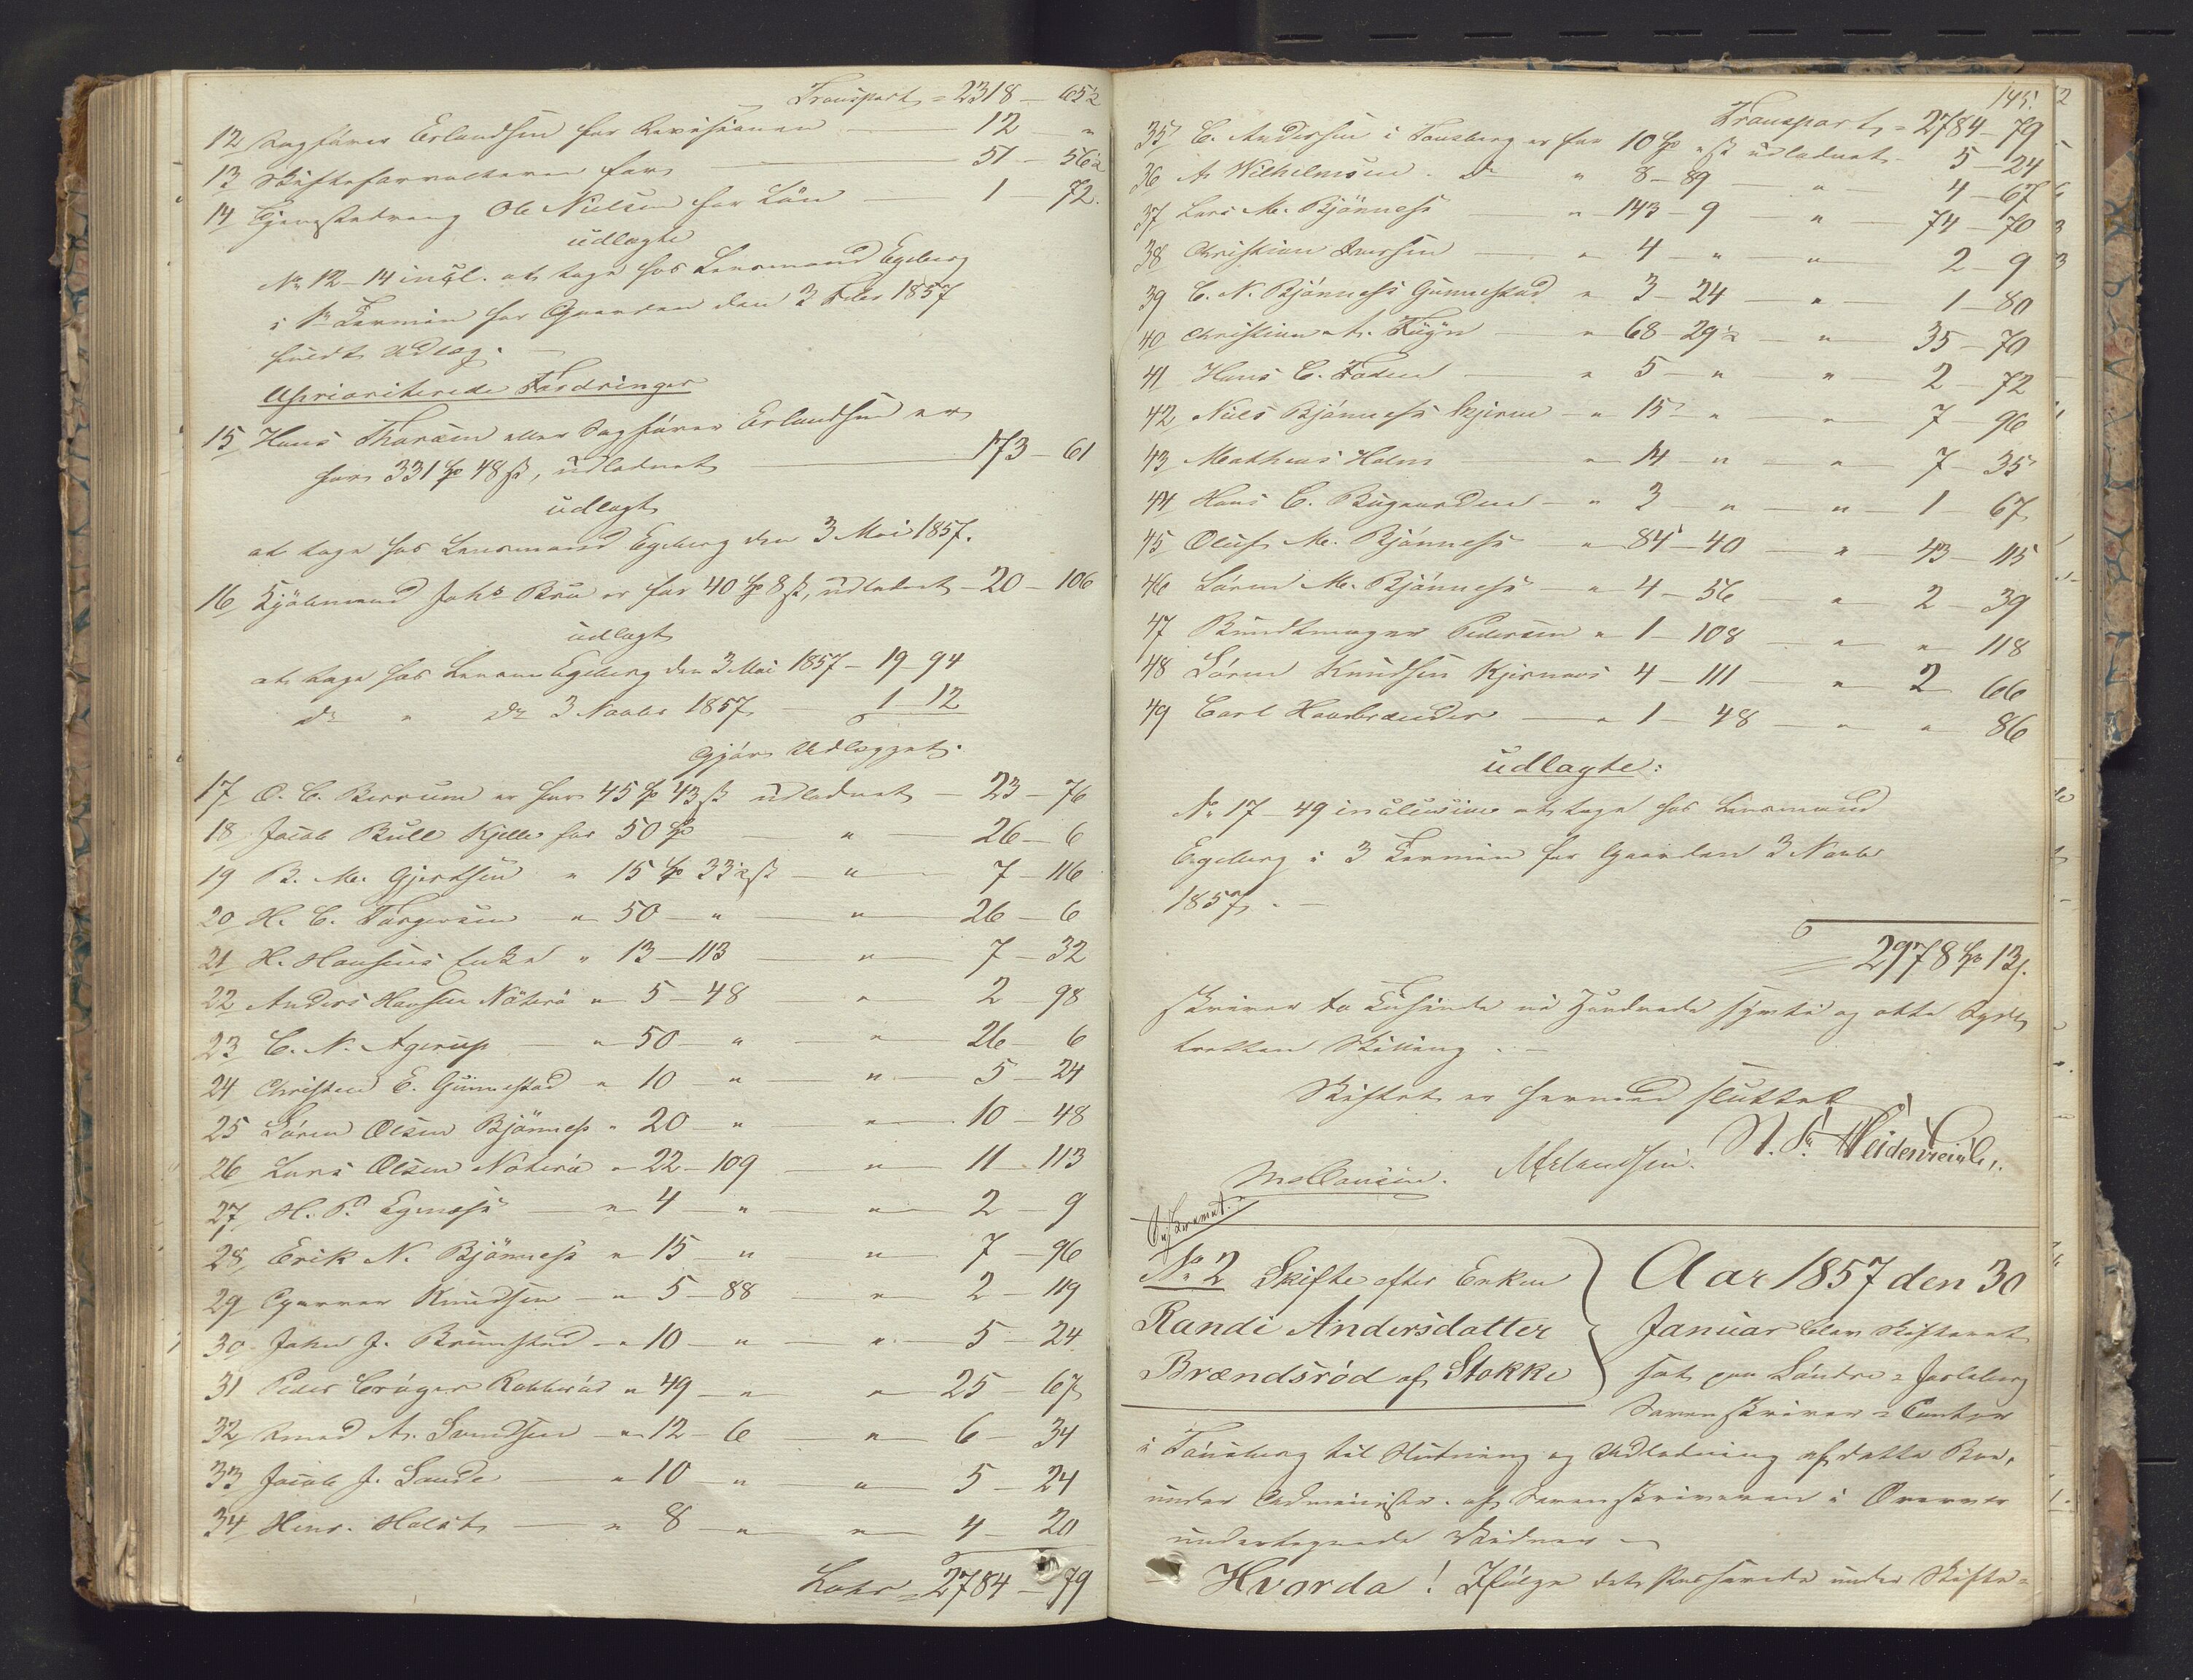 Transport = 2318 - 65½
12 Sagfører Erlandsen for Revisionen 12 "
13 Skifteforvalteren for 51 - 56½
14 Tjenestedreng Ole Nielsen for Løn 1 - 72.
udlagte
No 12-14 incl. at tage hos Lensmand Egeberg
i 1ste Termin for Gaarden den 3 Febr 1857
fuldt Udlæg.
Uprioriterede Fordringer
15 Hans Thorsen eller Sagfører Erlandsen er
for 331 Sp 48 ß, udlodnet 173 - 61
udlagt
at tage hos Lensmand Egeberg den 3 Mai 1857.
16 Kjøbmand Johs Bru er for 40 Sp 8 ß, udlodnet - 20 - 106
udlagt
at tage hos Lensm Egeberg den 3 Mai 1857 - 19 - 94
do " do 3 Novbr 1857 - 1 - 12
Gjør Udlægget.
17 O. C. Berrum er for 45 Sp 43 ß udlodnet - 23 - 76
18 Jacob Bull Kjelle for 50 Sp " 26 - 6
19 B. M. Gjertsen " 15 Sp 33½ ß - " 7 - 116
20 H. C. Torgersen " 50 - " " 26 - 6
21 H. Hansens Enke " 13 - 113 " 7 - 32
22 Anders Hansen Nøterø " 5 - 48 " 2 - 98
23 C. N. Agerup " 50 " " 26 - 6
24 Christen E. Gunnestad " 10 - " " 5 - 24
25 Søren Olsen Bjønness " 20 - " " 10 - 48
26 Lars Olsen Nøterø " 22 - 109 " 11 - 113
27 H. P. Egenæss " 4 - " " 2 - 9
28 Erik N. Bjønness " 15 " " 7 - 96
29 Gunner Knudsen " 5 - 88 " 2 - 119
30 John J. Brunstad " 10 - " " 5 - 24
31 Peder Crøger Robberød " 49 - " " 25 - 67
32 Amed A. Sandsen " 12 - 6 " 6 - 34
33 Jacob J. Sande " 10 " " 5 - 24
34 Hans. Holst " 8 - " " 4 - 20
Lates = 2784 - 79
145.
Transport = 2784 - 79
35 C. Andersen i Tønsberg er for 10 Sp " ß udlodnet - 5 - 24
36 A Wilhelmsen do " 8 - 89 " 4 - 67
37 Lars M. Bjønness " 143 - 9 " 74 - 70
38 Christian Iversen " 4 - " " 2 - 9
39 C. N. Bjønness Gunnestad " 3 - 24 " 1 - 80
40 Christian A. Føyn " 68 - 29½ " 35 - 70
41 Hans C. Foden " 5 - " " 2 - 72
42 Niels Bjønness Skjeren " 15 " " 7 - 96
43 Mathias Holm " 14 " " 7 - 35
44 Hans C. Bugaarden " 3 " " 1 - 67
45 Oluf M. Bjønness " 84 - 40 " 43 - 115
46 Søren M. Bjønness " 4 - 56 " 2 - 39
47 Bundtmager Pedersen " 1 - 108 " " 118
48 Søren Knudsen Kjernaas 4 - 111 " 2 66
49 Carl Haarbrænder " 1 - 48 " " 86
udlagte:
No 17-49 inclusive at tage hos Lensmand
Egeberg i 3 Termin for Gaarden 3 Novbr
1857. -
2978 Sp 13 ß.
skriver to Tusinde ni Hundrede sytti og otte Spdlr
tretten Skilling. -
Skiftet er hermed sluttet
Erlandsen. Heidenreich.
No 2 Skifte efter Enken
Randi Andersdatter
Brændsrød af Stokke
Aar 1857 den 30
Januar blev Skifteret
sat paa Søndre = Jarlsberg
Sorenskriver = Contor
i Tønsberg til Slutning og Udlodning af dette Boe,
under Administr. af Sorenskriveren i Overvær
undertegnede Vidner
Hvorda! Ifølge det passerede under Skifte=